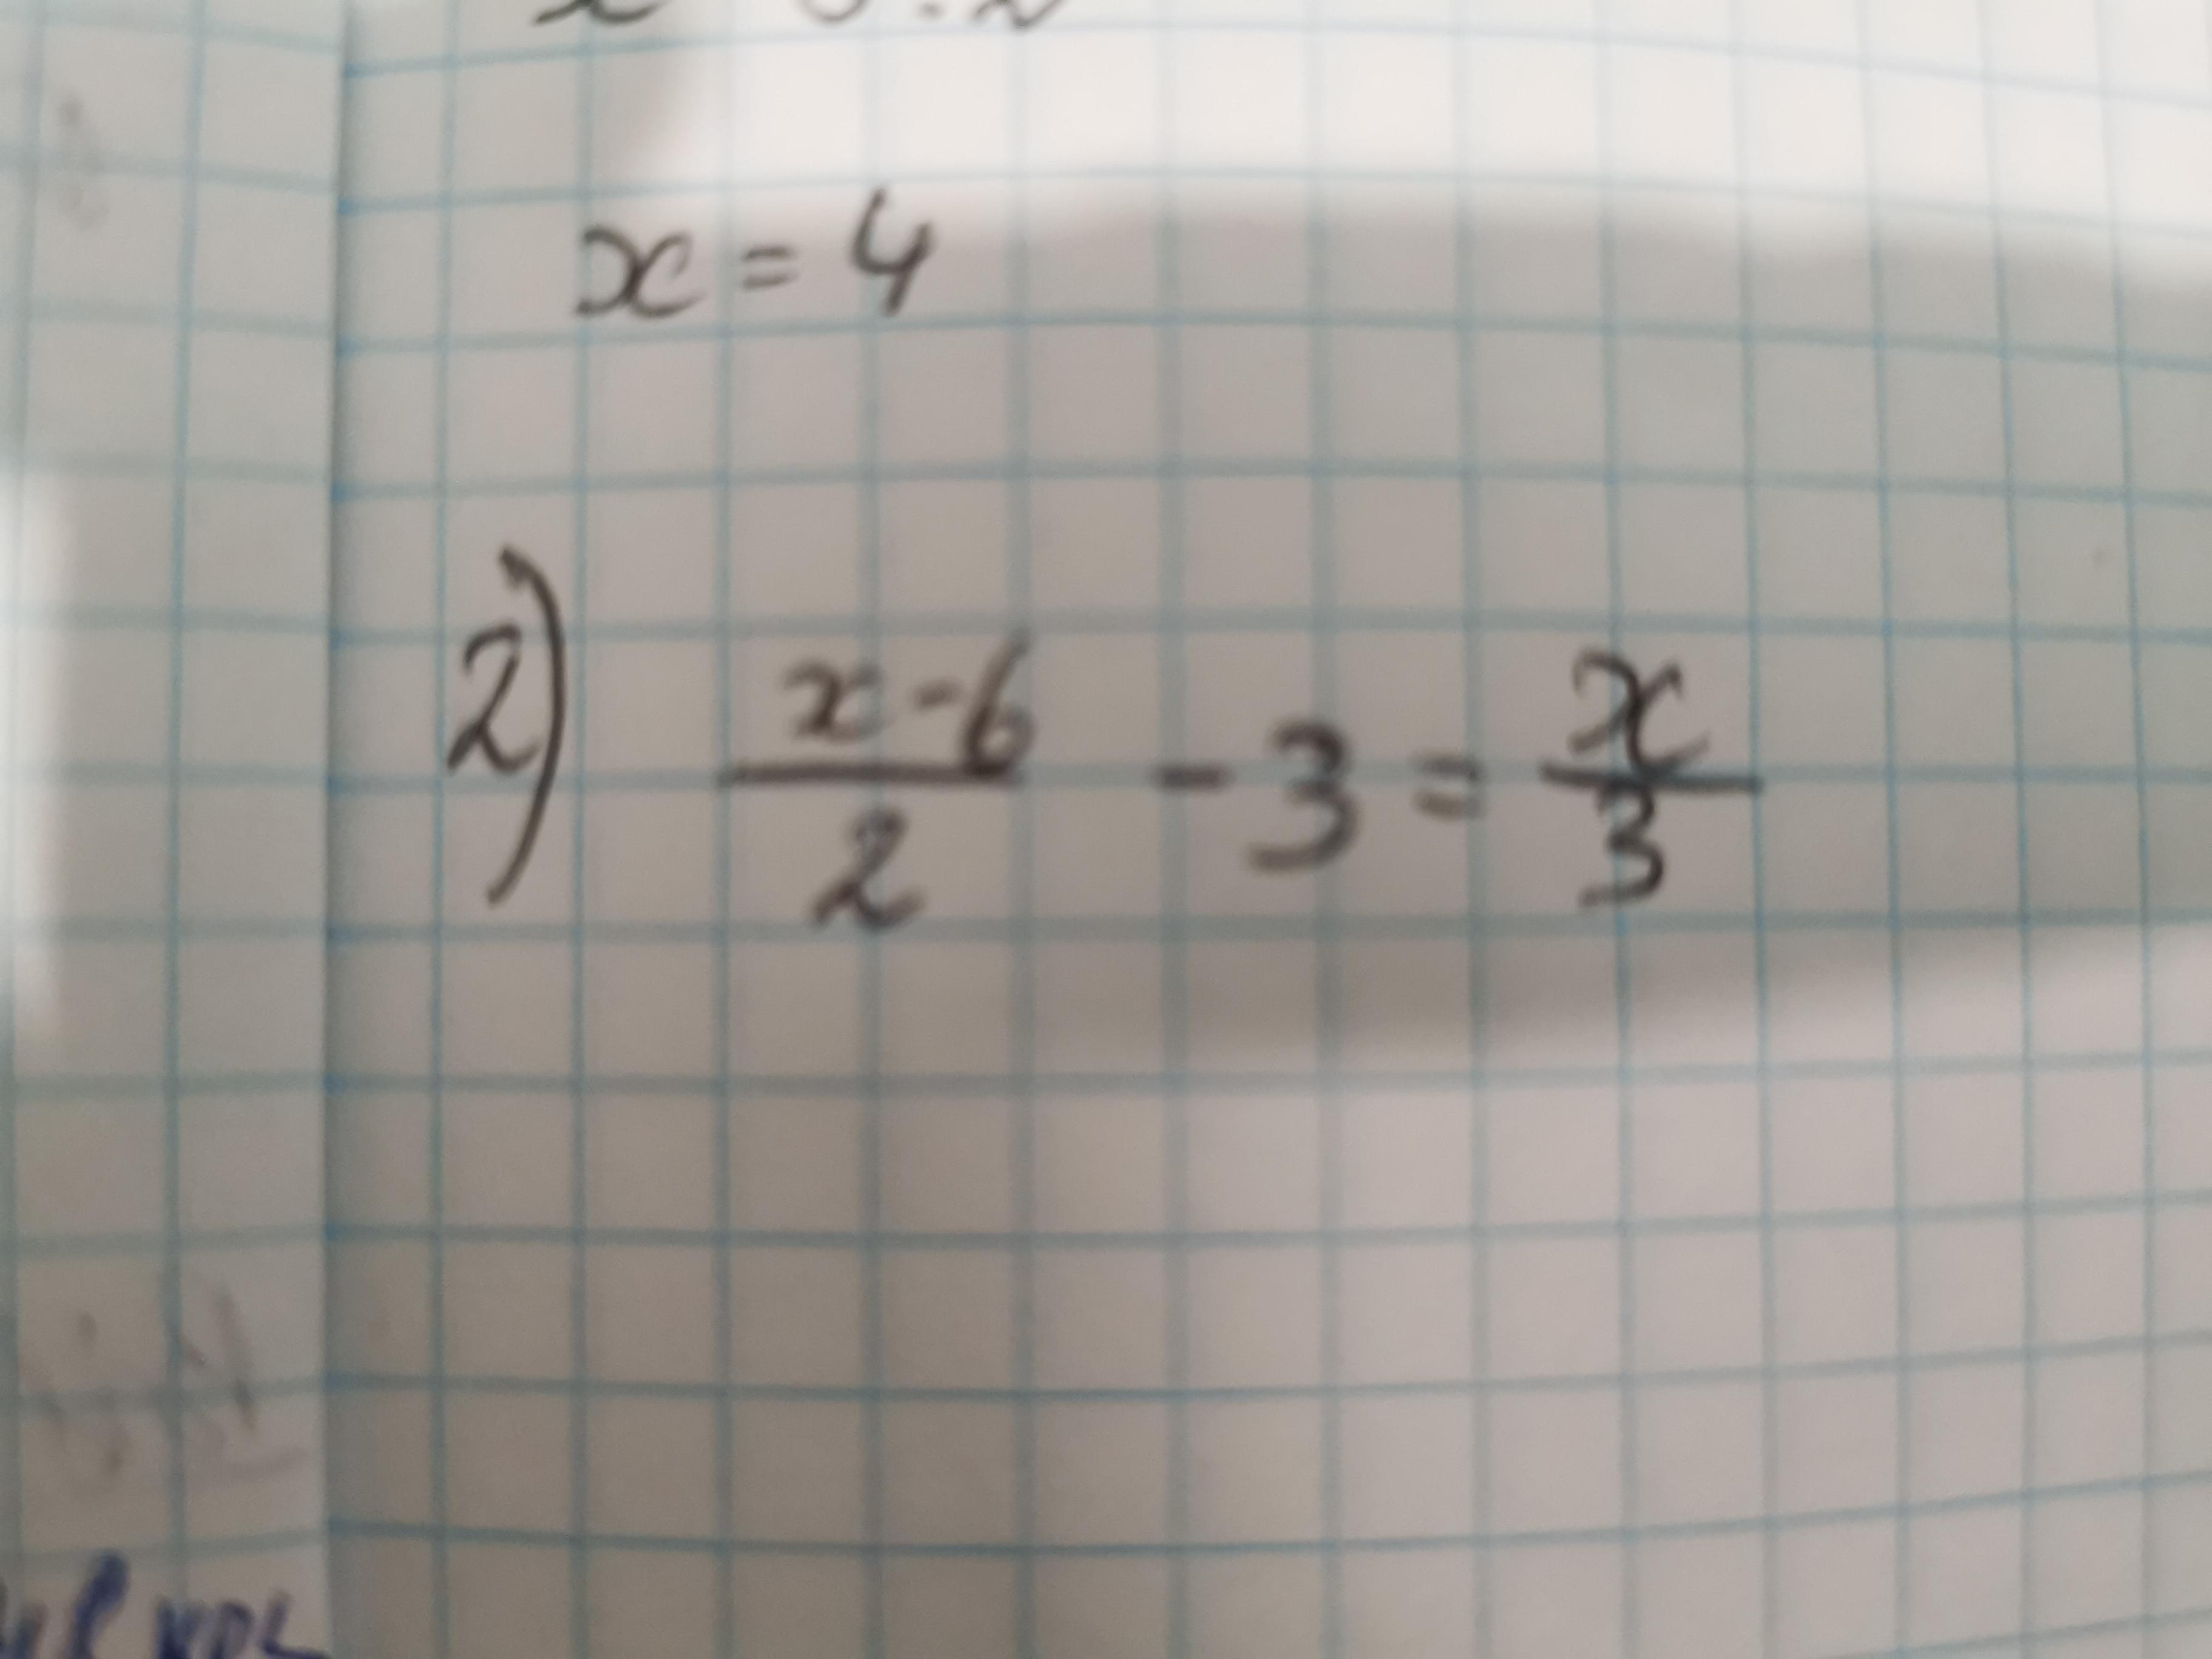 x = 4
2) \frac{x-6}{2} - 3 = \frac{x}{3}